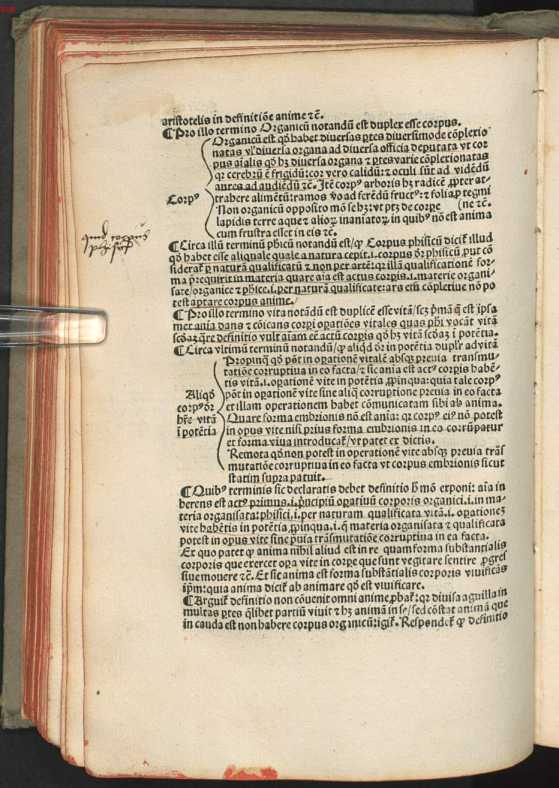 aristotelis in definitiōe anime ⁊c̄.
¶ Pro illo termino Organicū notandū est duplex esse corpus.
Organicū est qđ habet diuersas ꝑtes diuersimode cōplexio
natas vl' diuersa organa ad diuersa officia deputata vt cor
pus aīalis qđ hȝ diuersa organa ⁊ ꝑtes varie cōplexionatas
qꝛ cerebrū ē frigidū: cor vero calidū: ⁊ oculi sūt ad vidēdū
aures ad audiēdū ⁊c̄. Itē corpꝰ arboris hȝ radicē ꝓpter at-
Corpꝰ
trahere alimētū: ramos v̄o ad ferēdū fructꝰ: ⁊ folia ꝓ tegmi
Non organicū opposito mō se hȝ: vt ptȝ de corpe (ne ⁊c̄.
lapidis terre aque ⁊ alioꝝ inanimatoꝝ in quibꝰ nō est anima
cum frustra esset in eis ⁊c̄.
¶ Circa illū terminū phicū notandū est/ꝙ Corpus phisicū dicit̄ illud
qđ habet esse aliquale quale a natura cepit .i. corpus ōr phisicū ꝓut cō
siderat̄ ꝑ naturā qualificatū ⁊ non per artē: qꝛ illā qualificationē for-
ma p̄requirit in materia quare aīa est actus corpis .i. materie organi-
sate/organice ⁊ phice .i. per naturā qualificate: ars em̄ cōsistiue nō po
test aptare corpus anime.
¶ Pro illo termino vita notādū est duplicē esse vitā/scȝ p̄mā q̄ est ipsa
met aīa dans ⁊ cōicans corpi opatiōes vitales quas phi vocāt vitā
scđaȝ q̄re definitio vult aīam eē actū corpis qđ hȝ vitā scđaȝ ī potētia.
¶ Circa vltimū terminū notandū/ꝙ aliqđ ōr in potētia duplr ad vitā
Propinq̄ qđ pōt in opationē vitalē absqꝫ preuia transmu-
tatiōe corruptiua in eo facta/⁊ sic aīa est actꝰ corpis habē-
tis vitā .i. opationē vite in potētia ꝓpinqua: quia tale corpꝰ
Aliqđ
pōt in opationē vite sine aliq̄ corruptione preuia in eo facta
corpꝰ ōr
et illam operationem habet cōmunicatam sibi ab anima.
hr̄e vitā
Quare forma embrionis nō est aīa: qꝛ corpꝰ eiꝰ nō potest
ī potētia
in opus vite nisi prius forma embrionis in eo corrūpatur
et forma viua introducat̄/vt patet ex dictis.
Remota qđ non potest in operationē vite absqꝫ preuia trās
mutatiōe corruptiua in eo facta vt corpus embrionis sicut
statim supra patuit.
¶ Quibꝰ terminis sic declaratis debet definitio hm̄ō exponi: aīa in
herens est actꝰ primus .i. p̄ncipiū opatiuū corporis organici .i. in ma-
teria organisata: phisici .i. per naturam qualificata vitā .i. opationeȝ
vite habētis in potētia ꝓpinqua .i. q̄ materia organisata ⁊ qualificata
potest in opus vite sine p̄uia trāsmutatiōe corruptiua in ea facta.
Ex quo patet ꝙ anima nihil aliud est in re quam forma substantialis
corporis que exercet opa vite in corpe que sunt vegitare sentire ꝓgres
siue mouere ⁊c̄. Et sic anima est forma substātialis corporis viuificās
ip̄m: quia anima dicit̄ ab animare qđ est viuificare.
¶ Arguit̄ definitio non cōuenit omni anime. ꝓbat̄: qꝛ diuisa aguilla in
multas ꝑtes q̄libet partiū viuit ⁊ hȝ animā in se/sed cōstat animā que
in cauda est non habere corpus organicū: igit̄. Respondet̄ ꝙ definitio